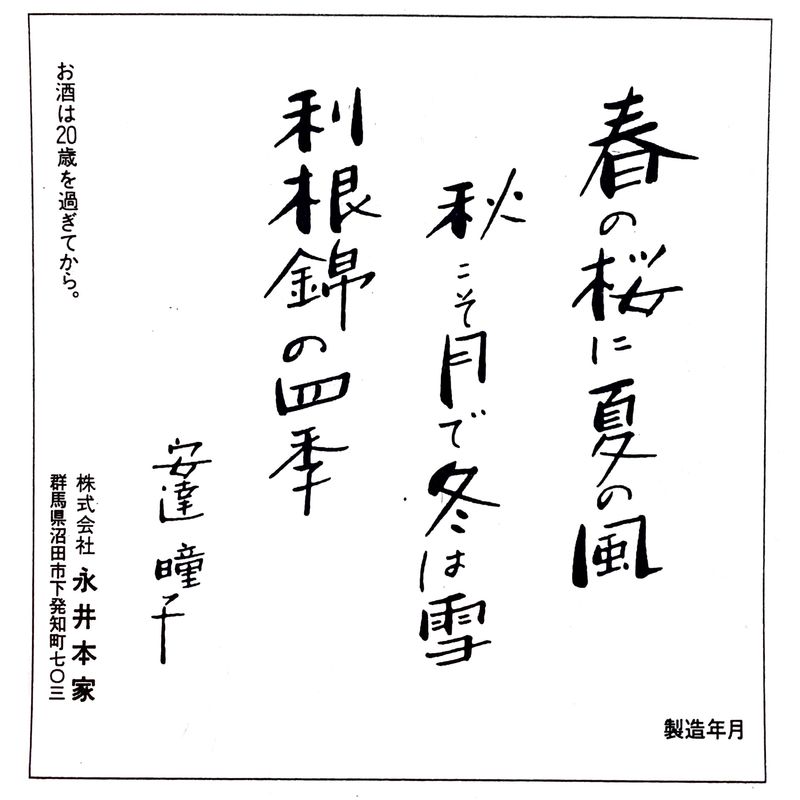 春の桜に夏の風
秋こそ月で冬は雪
利根錦の四季
安達瞳子
お酒は20歳を過ぎてから。
株式会社 永井本家
群馬県沼田市下発知町七〇三
製造年月